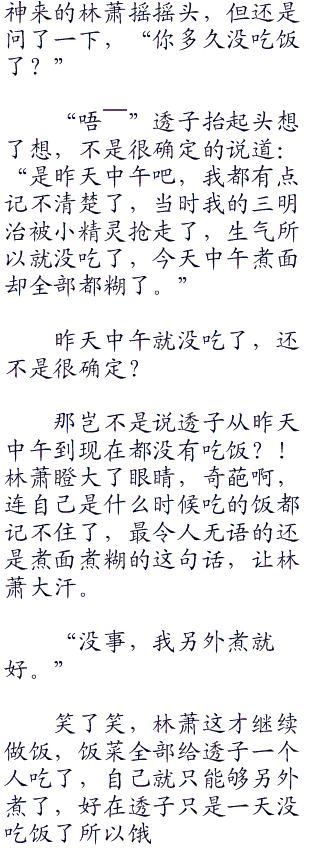 神来的林萧摇摇头，但还是
问了一下，“你多久没吃饭
了？”
“唔——”透子抬起头想
了想，不是很确定的说道：
“是昨天中午吧，我都有点
记不清楚了，当时我的三明
治被小精灵抢走了，生气所
以就没吃了，今天中午煮面
却全部都糊了。”
昨天中午就没吃了，还
不是很确定？
那岂不是说透子从昨天
中午到现在都没有吃饭？！
林萧瞪大了眼睛，奇葩啊，
连自己是什么时候吃的饭都
记不住了，最令人无语的还
是煮面煮糊的这句话，让林
萧大汗。
“没事，我另外煮就
好。”
笑了笑，林萧这才继续
做饭，饭菜全部给透子一个
人吃了，自己就只能够另外
煮了，好在透子只是一天没
吃饭了所以饿